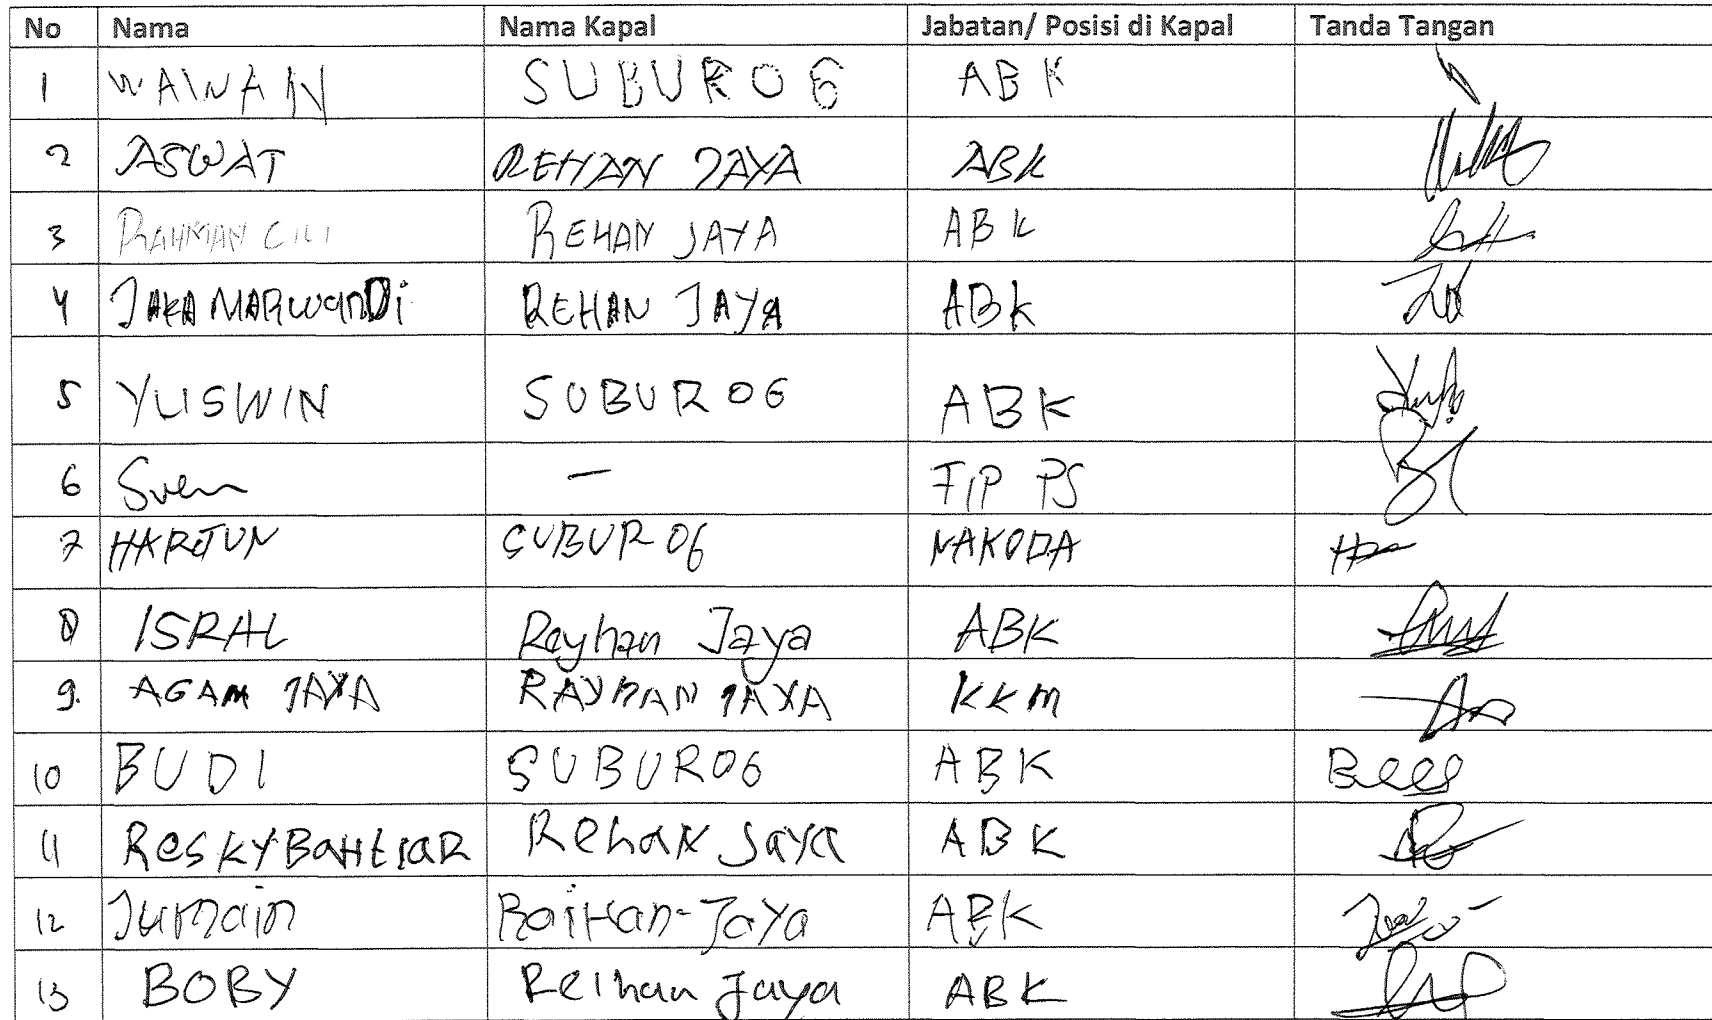 No Nama Nama Kapal Jabatan/ Posisi di Kapal Tanda Tangan
1 WAINAN SUBUR 06 ABK
2 ASWAT REHAN JAYA ABK
3 RAHMAN CILI REHAN JAYA ABK
4 JAKA MARWANDi REHAN JAYA ABK
5 YUSWIN SUBUR 06 ABK
6 Sven - FIP PS
7 HARTUN SUBUR 06 NAKODA
8 ISRAL Reyhan Jaya ABK
9. AGAM JAYA RAYHAN JAYA KKM
10 BUDI SUBUR06 ABK
11 ResKYBaHtiaR Rehan Jaya ABK
12 Jumain RaiHan-Jaya ABK
13 BOBY Reihan Jaya ABK